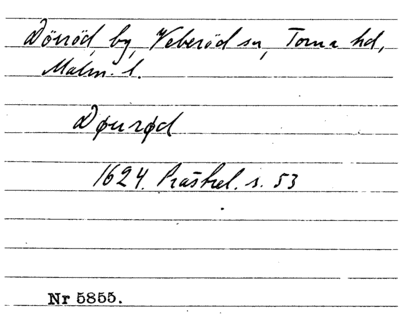 Dörröd, by, Veberöd sn, Torna hd,
Malm. l.
Døurød
1624. Prästrel. s. 53
Nr 5855.